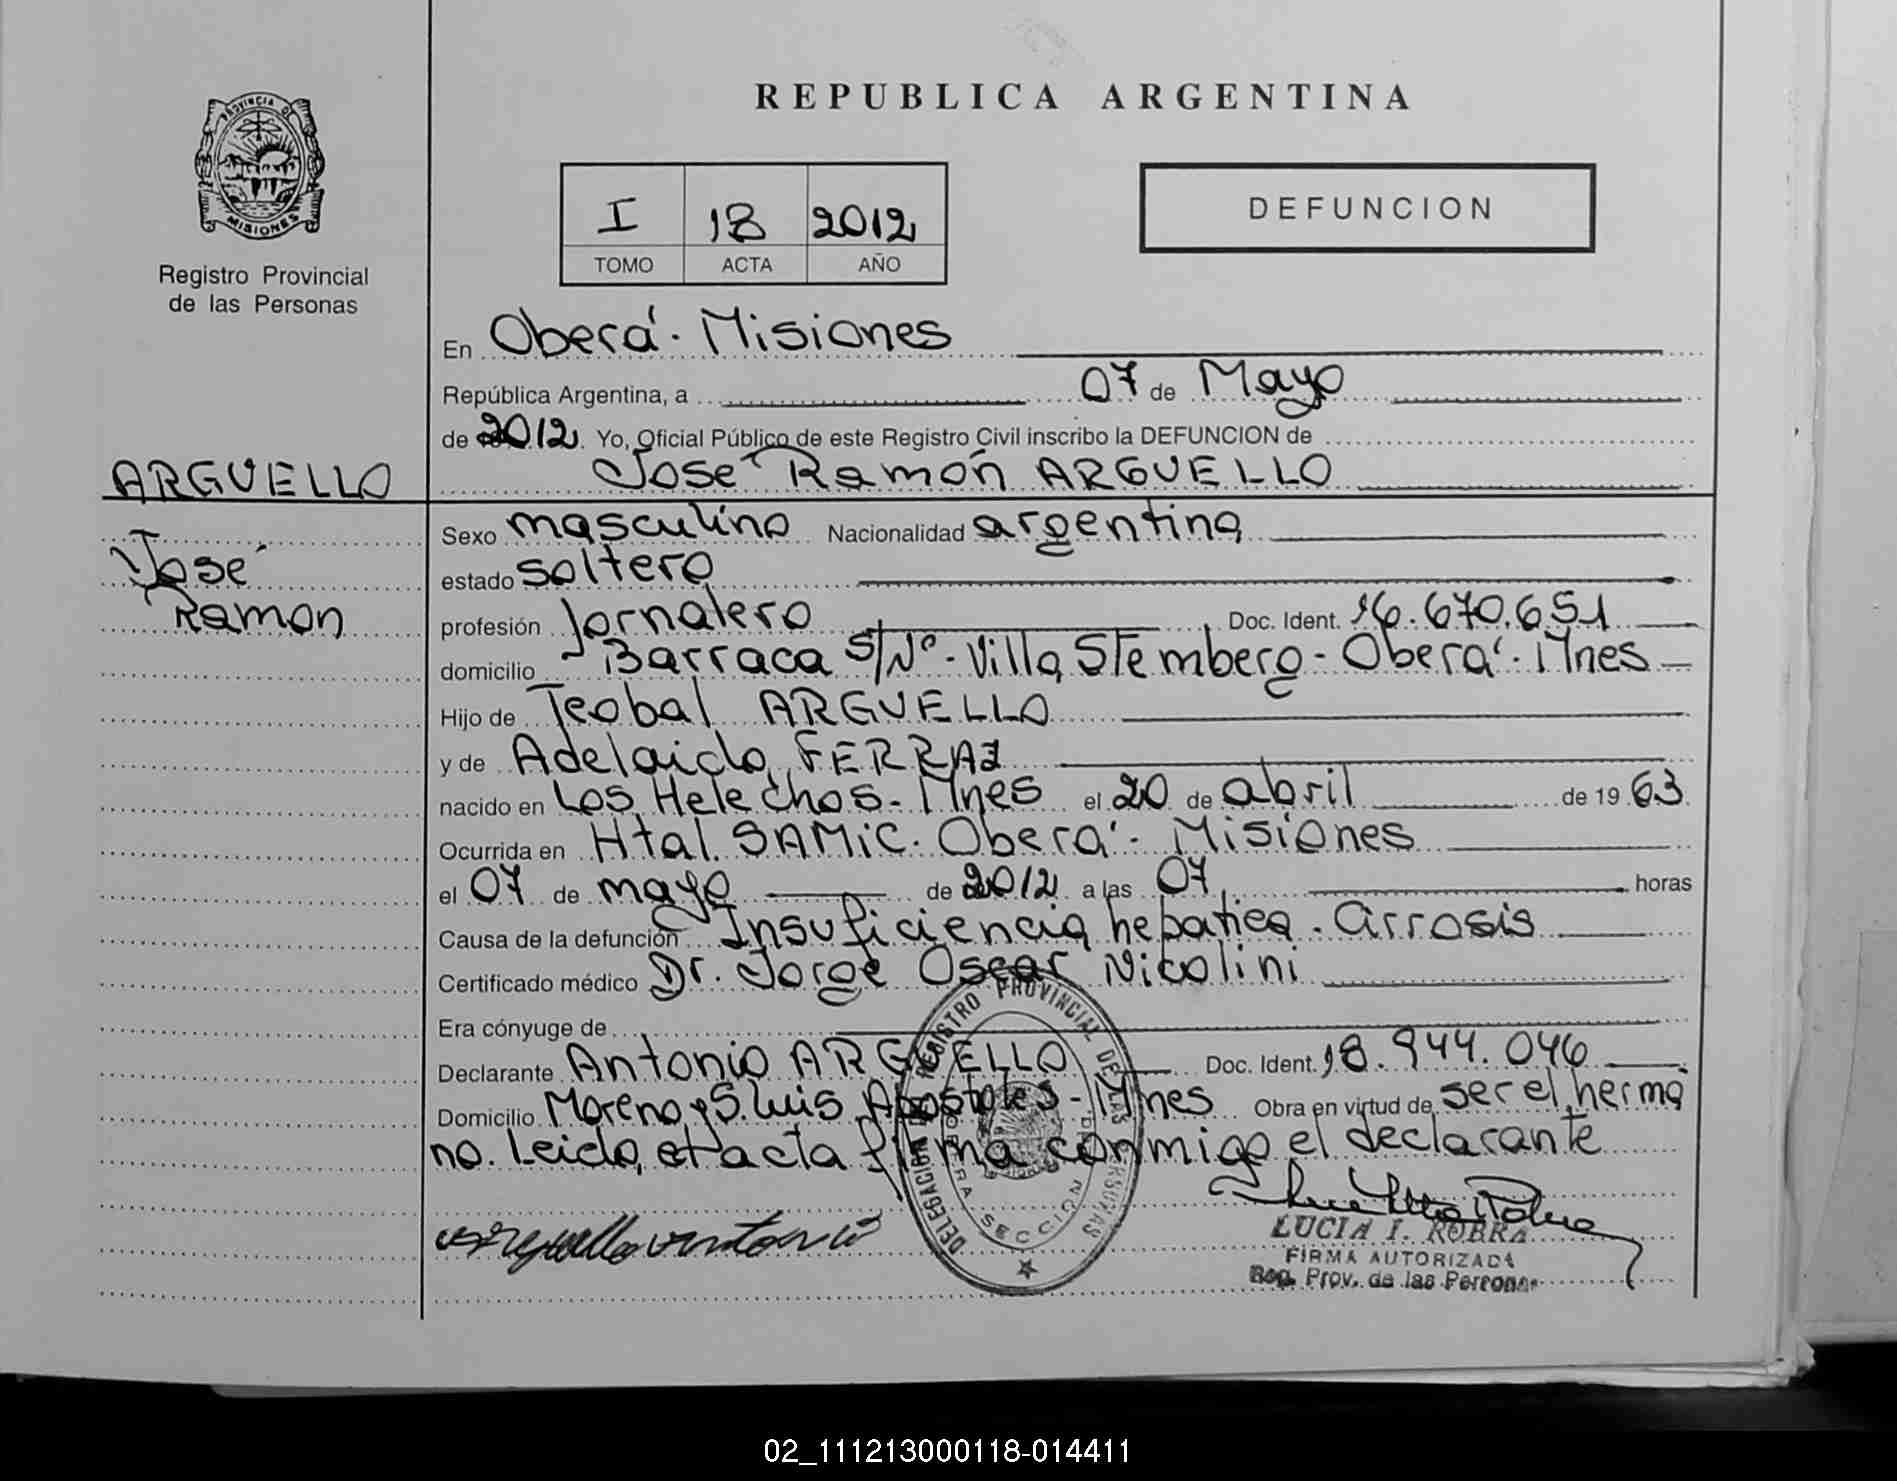 PROVINCIA DE
MISIONES
Registro Provincial
de las Personas
REPUBLICA ARGENTINA
I 18 2012
TOMO ACTA AÑO
DEFUNCION
En Oberá. Misiones
República Argentina, a 07 de Mayo
de 2012. Yo, Oficial Público de este Registro Civil inscribo la DEFUNCION de
ARGUELLO José Ramón ARGUELLO
Sexo masculino Nacionalidad argentina
José
estado soltero
Ramon
profesión Jornalero Doc. Ident. 16.670.651
domicilio Barraca S/Nº - Villa Stemberg - Oberá. Mnes
Hijo de Teobal ARGUELLO
y de Adelaida FERRAZ
nacido en Los Helechos - Mnes el 20 de abril de 1963
Ocurrida en Htal. SAMiC. Oberá - Misiones
el 07 de mayo de 2012 a las 07 horas
Causa de la defunción Insuficiencia hepatica. Cirrosis
Certificado médico Dr. Jorge Oscar Nicolini
Era cónyuge de
Declarante Antonio ARGUELLO Doc. Ident. 18.944.046
Domicilio Moreno y S. Luis Apostoles - Mnes Obra en virtud de ser el herma
no. Leida el acta firma conmigo el declarante
DELEGACION REGISTRO PROVINCIAL DE LAS PERSONAS
SECCION
Arguello Antonio
LUCIA I. ROBRA
FIRMA AUTORIZADA
Reg. Prov. de las Personas
02_111213000118-014411